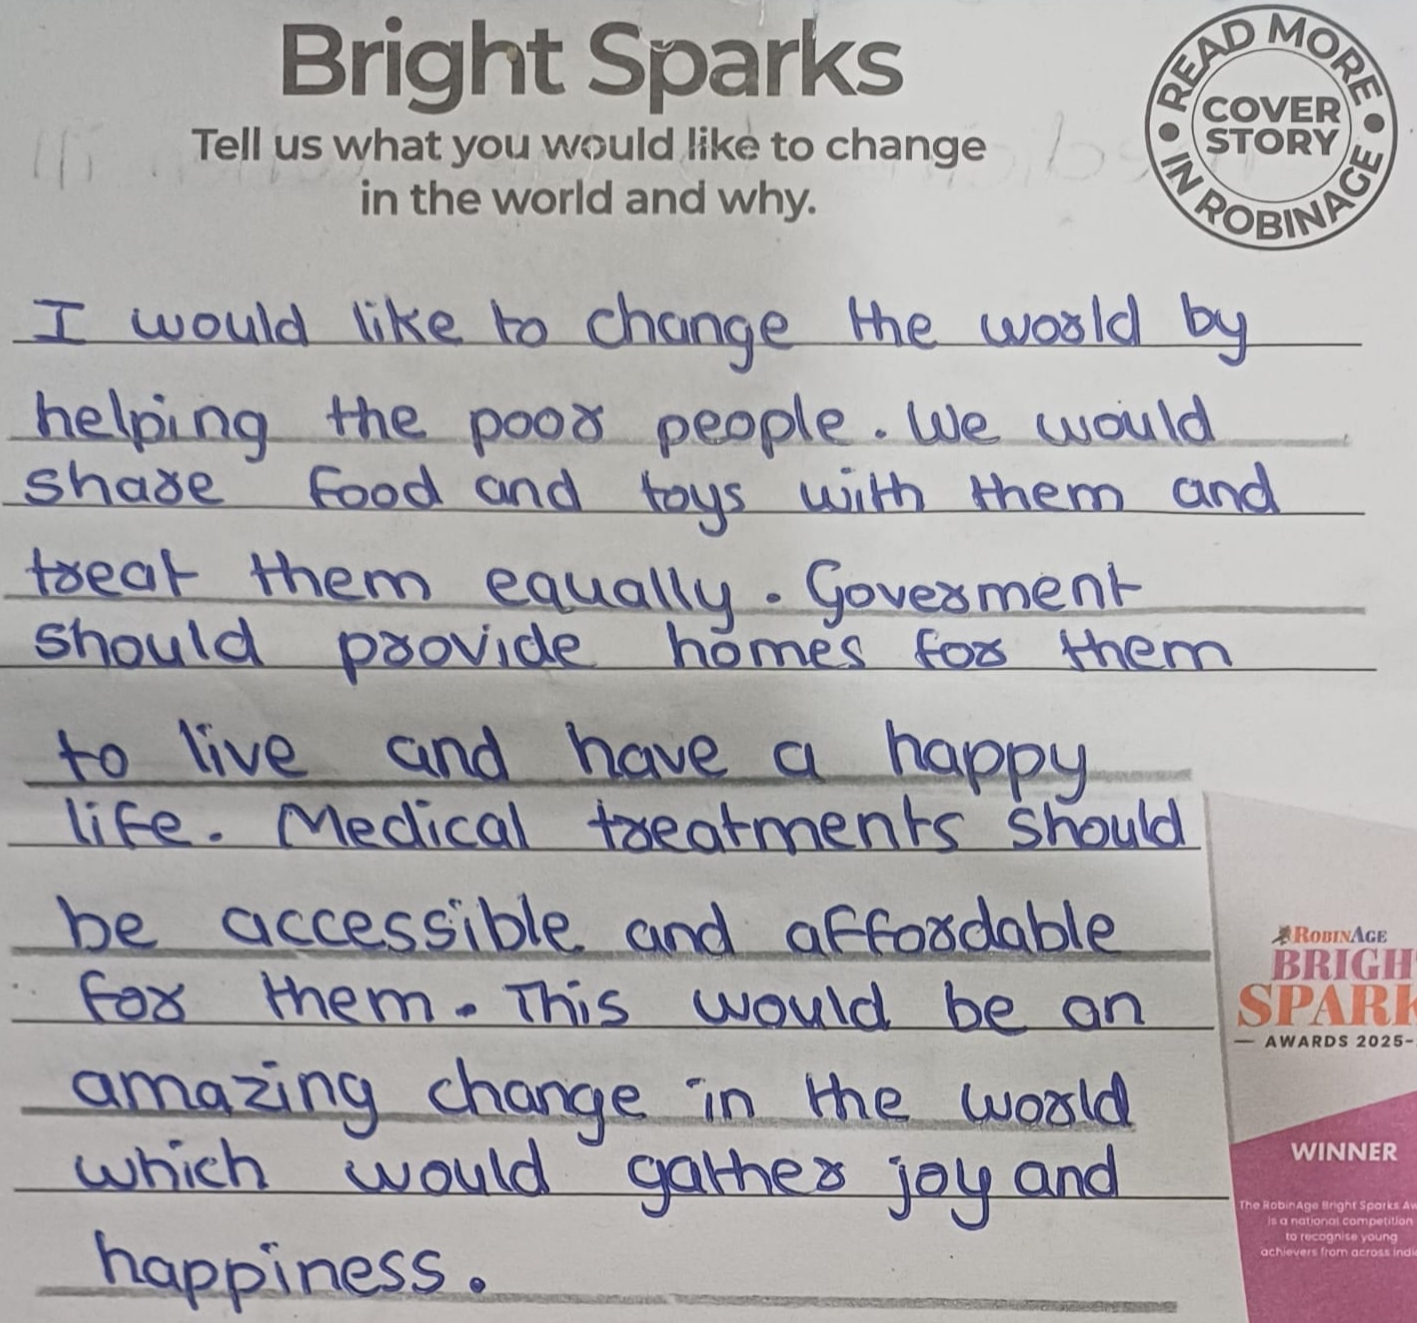 Bright Sparks
Tell us what you would like to change
in the world and why.
READ MORE
COVER
STORY
IN ROBINAGE
I would like to change the world by
helping the poor people. We would
share food and toys with them and
treat them equally. Goverment
should provide homes for them
to live and have a happy
life. Medical treatments should
be accessible and affordable
for them. This would be an
amazing change in the world
which would gather joy and
happiness.
ROBINAGE
BRIGH
SPARK
— AWARDS 2025-
WINNER
The RobinAge Bright Sparks Aw
is a national competition
to recognise young
achievers from across Indi